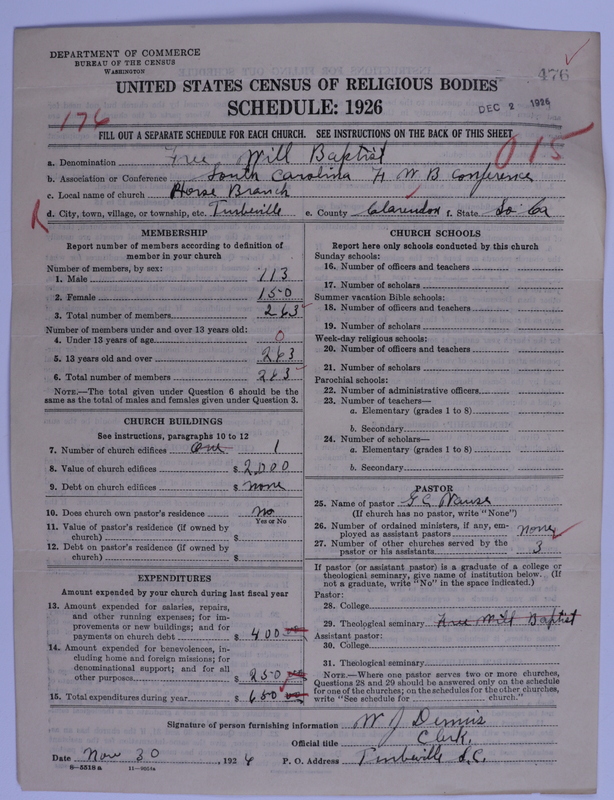 DEPARTMENT OF COMMERCE
BUREAU OF THE CENSUS
WASHINGTON
476
UNITED STATES CENSUS OF RELIGIOUS BODIES
SCHEDULE: 1926
DEC 2 1926
176
FILL OUT A SEPARATE SCHEDULE FOR EACH CHURCH. SEE INSTRUCTIONS ON THE BACK OF THIS SHEET
015
a. Denomination Free Will Baptist
b. Association or Conference South Carolina F W B Conference
c. Local name of church Horse Branch
d. City, town, village, or township, etc. Turbeville e. County Clarendon f. State So Ca
MEMBERSHIP
Report number of members according to definition of
member in your church
Number of members, by sex:
1. Male 113
2. Female 150
3. Total number of members 263
Number of members under and over 13 years old:
4. Under 13 years of age 0
5. 13 years old and over 263
6. Total number of members 263
NOTE.—The total given under Question 6 should be
same as the total of males and females given under Question 3.
CHURCH BUILDINGS
See instructions, paragraphs 10 to 12
7. Number of church edifices One 1
8. Value of church edifices $ 2,000
9. Debt on church edifices $ none
10. Does church own pastor's residence no
Yes or No
11. Value of pastor's residence (if owned by
church) $
12. Debt on pastor's residence (if owned by
church) $
EXPENDITURES
Amount expended by your church during last fiscal year
13. Amount expended for salaries, repairs,
and other running expenses; for im-
provements or new buildings; and for
payments on church debt $ 400
14. Amount expended for benevolences, in-
cluding home and foreign missions; for
denominational support; and for all
other purposes $ 250
15. Total expenditures during year $ 650
CHURCH SCHOOLS
Report here only schools conducted by this church
Sunday schools:
16. Number of officers and teachers
17. Number of scholars
Summer vacation Bible schools:
18. Number of officers and teachers
19. Number of scholars
Week-day religious schools:
20. Number of officers and teachers
21. Number of scholars
Parochial schools:
22. Number of administrative officers
23. Number of teachers—
a. Elementary (grades 1 to 8)
b. Secondary
24. Number of scholars—
a. Elementary (grades 1 to 8)
b. Secondary
PASTOR
25. Name of pastor G C
(If church has no pastor, write "None")
26. Number of ordained ministers, if any, em-
ployed as assistant pastors none
27. Number of other churches served by the
pastor or his assistants 3
If pastor (or assistant pastor) is a graduate of a college or
theological seminary, give name of institution below. (If
not a graduate, write "No" in the space indicated.)
Pastor:
28. College
29. Theological seminary Free Will Baptist
Assistant pastor:
30. College
31. Theological seminary
NOTE.—Where one pastor serves two or more churches,
Questions 28 and 29 should be answered only on the schedule
for one of the churches; on the schedules for the other churches,
write "See schedule for church."
Signature of person furnishing information W J Dennis
Official title Clerk.
Date Nov 30, 1926 P. O. Address Turbeville S.C.
8-5318a